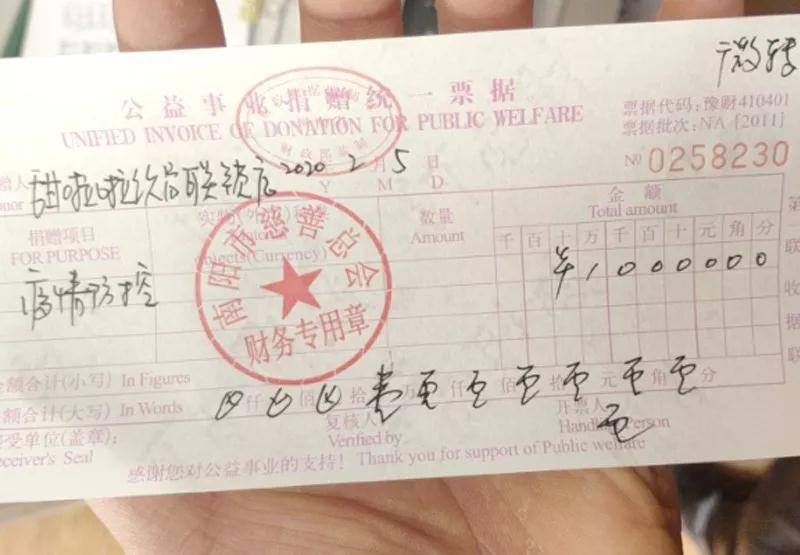 微转
公益事业捐赠统一票据
UNIFIED INVOICE OF DONATION FOR PUBLIC WELFARE
财政部监制
票据代码:豫财410401
票据批次:NA [2011]
№ 0258230
赠人
onor 甜啦啦 联锁店 2020 2月 5日
Y M D
捐赠项目
FOR PURPOSE
实物(外币)
Objects(Currency)
数量
Amount
金额
Total amount
千 百 十 万 千 百 十 元 角 分
疫情防控
¥1000000
南阳市慈善总会
财务专用章
第
联
收
据
联
金额合计(小写) In Figures
金额合计(大写) In Words 仟 佰 拾 壹万 仟 佰 拾 元 角 分
接受单位(盖章):
eceiver's Seal
复核人
Verified by
开票人
Handling Person
感谢您对公益事业的支持! Thank you for support of Public welfare